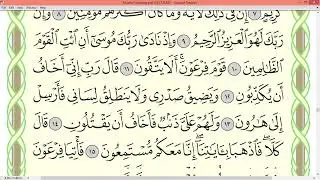 كَرِيمٍ ٧ إِنَّ فِي ذَٰلِكَ لَآيَةً وَمَا كَانَ أَكْثَرُهُم مُّؤْمِنِينَ ٨ وَإِنَّ
رَبَّكَ لَهُوَ الْعَزِيزُ الرَّحِيمُ ٩ وَإِذْ نَادَىٰ رَبُّكَ مُوسَىٰ أَنِ ائْتِ الْقَوْمَ
الظَّالِمِينَ ١٠ قَوْمَ فِرْعَوْنَ أَلَا يَتَّقُونَ ١١ قَالَ رَبِّ إِنِّي أَخَافُ
أَن يُكَذِّبُونِ ١٢ وَيَضِيقُ صَدْرِي وَلَا يَنطَلِقُ لِسَانِي فَأَرْسِلْ
إِلَىٰ هَارُونَ ١٣ وَلَهُمْ عَلَيَّ ذَنبٌ فَأَخَافُ أَن يَقْتُلُونِ ١٤ قَالَ
كَلَّا فَاذْهَبَا بِآيَاتِنَا إِنَّا مَعَكُم مُّسْتَمِعُونَ ١٥ فَأْتِيَا فِرْعَوْنَ